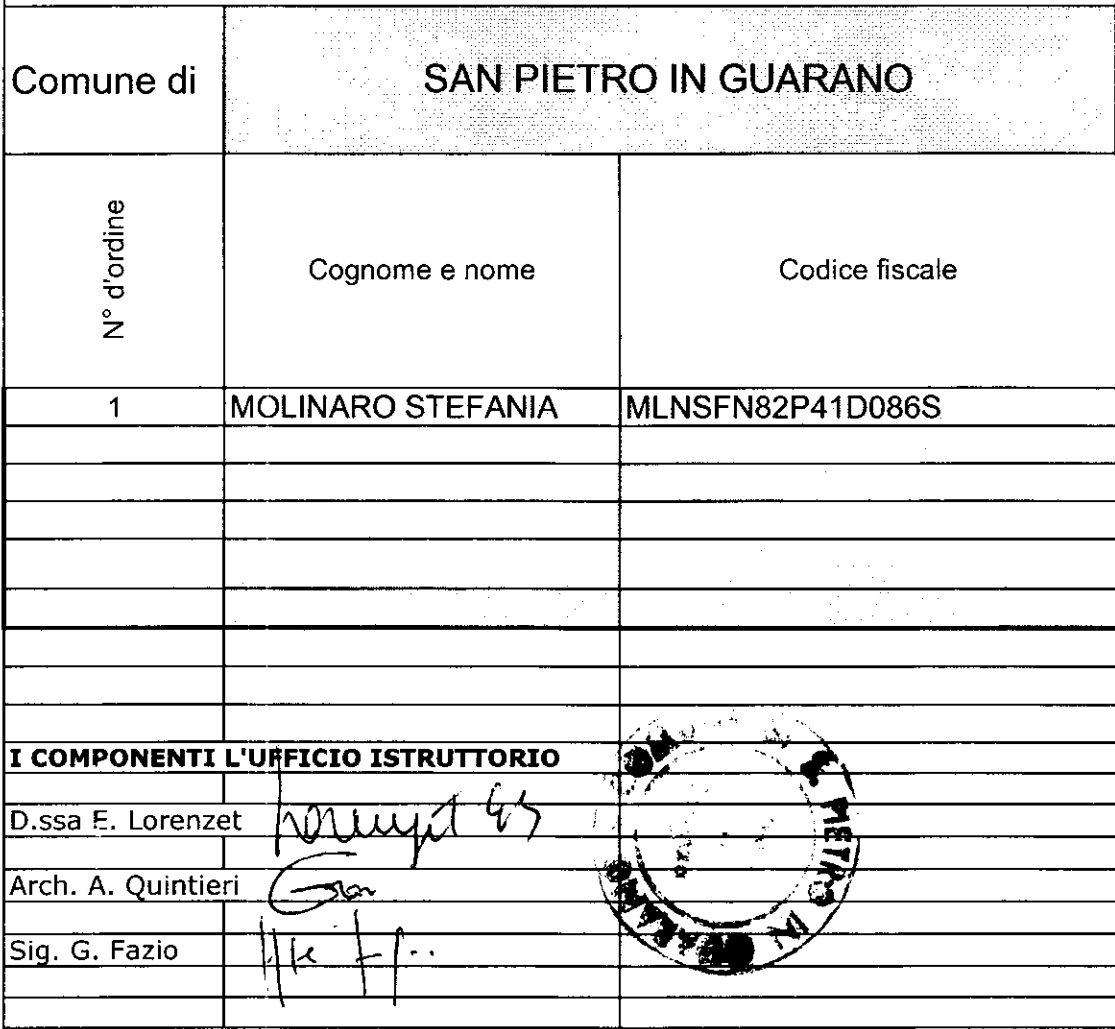 Comune di SAN PIETRO IN GUARANO
N° d'ordine Cognome e nome Codice fiscale
1 MOLINARO STEFANIA MLNSFN82P41D086S
I COMPONENTI L'UFFICIO ISTRUTTORIO
D.ssa E. Lorenzet
Arch. A. Quintieri
Sig. G. Fazio
PIETRO IN